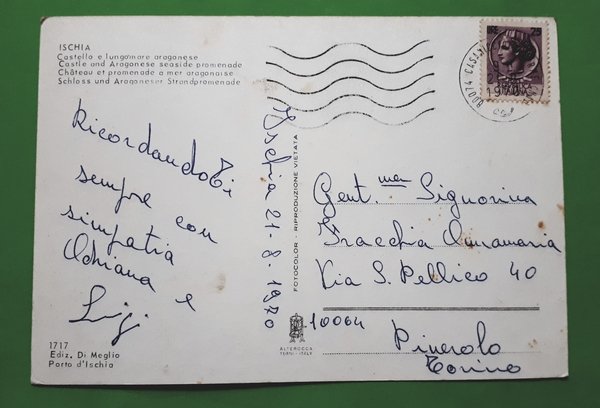 ISCHIA
Castello e lungomare aragonese
Castle and Aragonese seaside promenade
Château et promenade a mer aragonaise
Schloss und Aragoneser Strandpromenade
RicordandoTi
sempre con
simpatia
Adriana e
Luigi
1717
Ediz. Di Meglio
Porto d'Ischia
Ischia 21-8-1970
FOTOCOLOR - RIPRODUZIONE VIETATA
ALTEROCCA
TERNI - ITALY
LIRE 25
80074 CASAMI
1970
Gent.ma Signorina
Fracchia Annamaria
Via S. Pellico 40
10064
Pinerolo
Torino